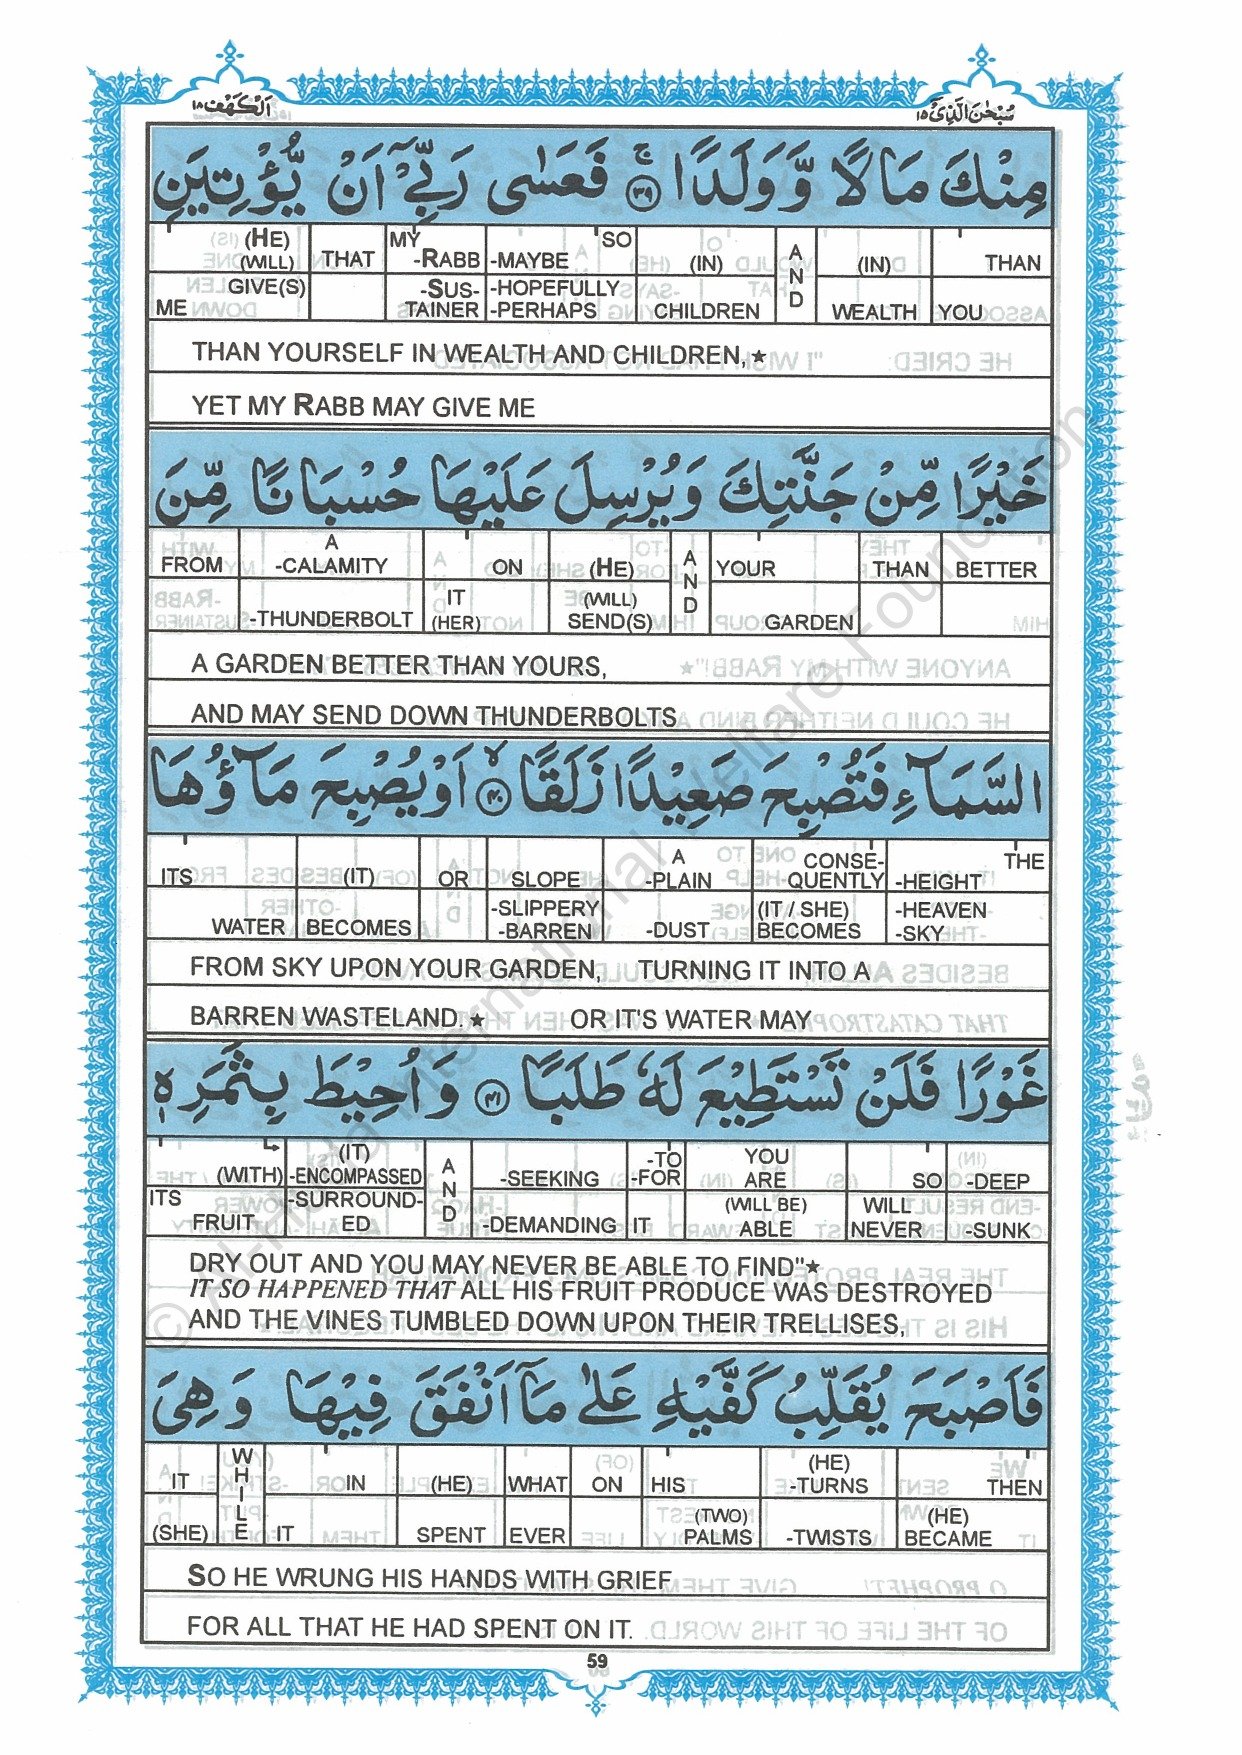 اَلْكَهْف ١٨
سُبْحٰنَ الَّذِىْ ١٥
مِنْكَ مَالًا وَّوَلَدًا ۚ ﴿٣٩﴾ فَعَسٰى رَبِّىْۤ اَنْ يُّؤْتِيَنِ
(HE) (WILL) GIVE(S) ME THAT MY -RABB -SUSTAINER SO -MAYBE -HOPEFULLY -PERHAPS (IN) CHILDREN AND (IN) WEALTH THAN YOU
THAN YOURSELF IN WEALTH AND CHILDREN,★
YET MY RABB MAY GIVE ME
خَيْرًا مِّنْ جَنَّتِكَ وَيُرْسِلَ عَلَيْهَا حُسْبَانًا مِّنَ
FROM A -CALAMITY -THUNDERBOLT ON IT (HER) (HE) (WILL) SEND(S) AND YOUR GARDEN THAN BETTER
A GARDEN BETTER THAN YOURS,
AND MAY SEND DOWN THUNDERBOLTS
السَّمَآءِ فَتُصْبِحَ صَعِيْدًا زَلَقًا ۙ ﴿٤٠﴾ اَوْ يُصْبِحَ مَآؤُهَا
ITS WATER (IT) BECOMES OR SLOPE -SLIPPERY -BARREN A -PLAIN -DUST CONSE-QUENTLY (IT / SHE) BECOMES THE -HEIGHT -HEAVEN -SKY
FROM SKY UPON YOUR GARDEN, TURNING IT INTO A
BARREN WASTELAND.★ OR IT'S WATER MAY
غَوْرًا فَلَنْ تَسْتَطِيْعَ لَهٗ طَلَبًا ﴿٤١﴾ وَاُحِيْطَ بِثَمَرِهٖ
(WITH) ITS FRUIT (IT) -ENCOMPASSED -SURROUND-ED AND -SEEKING -DEMANDING -TO -FOR IT YOU ARE (WILL BE) ABLE SO WILL NEVER -DEEP -SUNK
DRY OUT AND YOU MAY NEVER BE ABLE TO FIND"★
IT SO HAPPENED THAT ALL HIS FRUIT PRODUCE WAS DESTROYED
AND THE VINES TUMBLED DOWN UPON THEIR TRELLISES,
فَاَصْبَحَ يُقَلِّبُ كَفَّيْهِ عَلٰى مَاۤ اَنْفَقَ فِيْهَا وَهِىَ
IT (SHE) WHILE IN IT (HE) SPENT WHAT EVER ON HIS (TWO) PALMS (HE) -TURNS -TWISTS THEN (HE) BECAME
SO HE WRUNG HIS HANDS WITH GRIEF
FOR ALL THAT HE HAD SPENT ON IT.
59